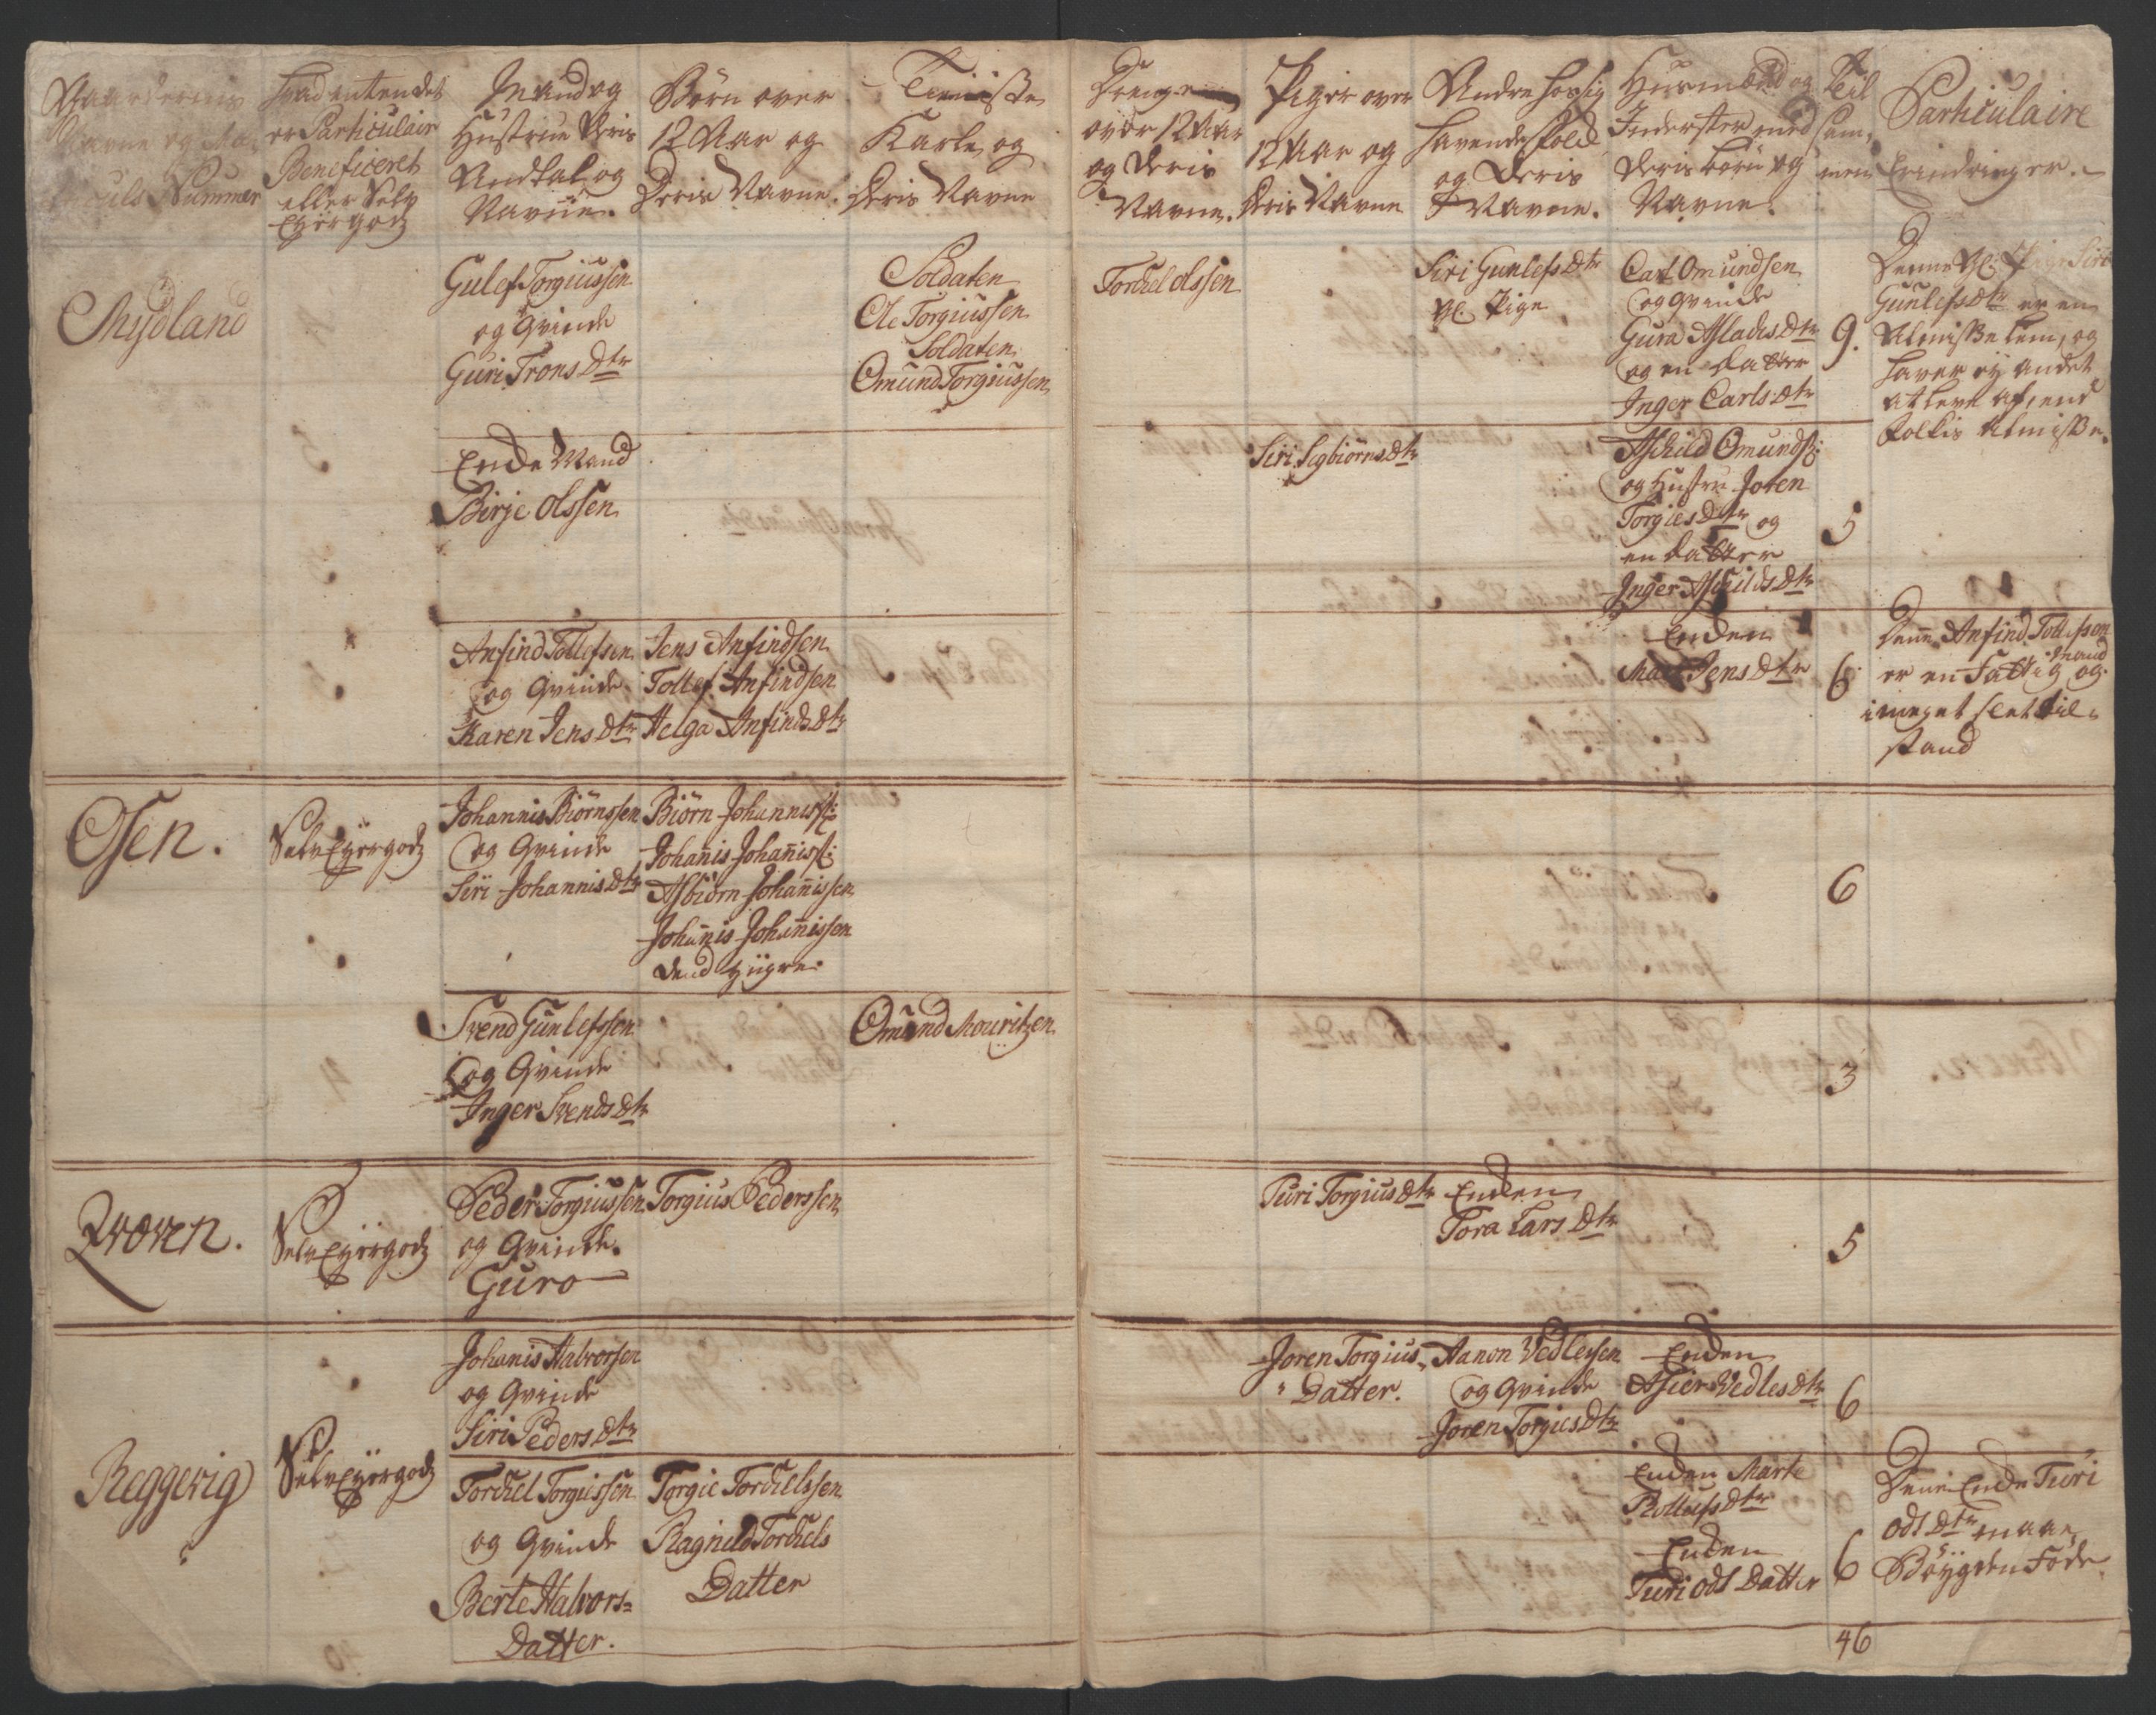 Gaardernis
Navne og Ma-
triculs Summer
hvad entten det
er Particulair
Beneficeret
eller Selv
Eyergodz
Mand og
Hustrue deris
Andtal og
Navne.
Børn over
12 Aar og
Deris Navne.
Tieniste
Karle og
Deris Navne
Drenge
over 12 Aar
og Deris
Navne.
Piger over
12 Aar og
Deris Navne
Andre hos sig
havende folck
og Deris
Navne.
Husmænd og
Inderster med
Deris børn og
Navne.
Til
sam,
men
Particulaire
Erindringer.
Mydland
Gulef Torgiussen
og Qvinde
Guri Trons Dtr
Soldaten
Ole Torgiussen
Soldaten
Omund Torgiussen
Torchel Olssen
Siri Gunlefs Dtr
gl. Pige
Carl Omundsen
og Qvinde
Gura Aslachs Dtr
og en Datter
Inger Carls Dtr
9.
Denne gl. Pige Siri
Gunlefs Dtr er en
Almisse lem, og
haver ey andet
at leve af, end
Folkis Almisse.
Enke Mand
Birje Olssen
Siri Sigbiørns Dtr
Aschild Omunds:
og Hustru Joren
Torgies Dtr og
en Datter
Inger Aschilds Dtr
5
Anfind Tollefsen
og Qvinde
Karen Jens Dtr
Jens Anfindsen
Tollef Anfindsen
Helga Anfinds Dtr
Enken
Mari Jens Dtr
6.
Denne Anfind Tollefsen
er en Fattig Mand og
i meget slet til-
stand
Osen.
Selv Eyergodz
Johannis Biørnssen
og Qvinde
Siri Johannis Dtr
Biørn Johanniss:
Johannis Johanniss:
Asbiørn Johannissen
Johannis Johannissen
dend yngre.
6
Svend Gunlefssen
og Qvinde
Inger Svends Dtr
Omund Mouritzen
3
Qvæven.
Selv Eyergodz
Peder Torgiussen
og Qvinde.
Guro
Torgius Pederssen
Turi Torgius Dtr
Enken
Tora Lars Dtr
5
Reggevig
Selv Eyergodz
Johanis Halvorsen
og Qvinde
Siri Peders Dtr
Joren Torgius,
Datter.
Aanon Vedlessen
og Qvinde
Joren Torgies Dtr
Enken
Asier Vedles Dtr
6
Torchel Torgiussen
og Qvinde
Berte Halvors-
Datter.
Torgie Torchelssen
Ragnild Torchels
Datter
Enken Marte
Rollefs Dtr
Enken
Turi Ods Datter
6
Denne Enke Turi
Ods Dtr maae
Bøygden Føde.
46